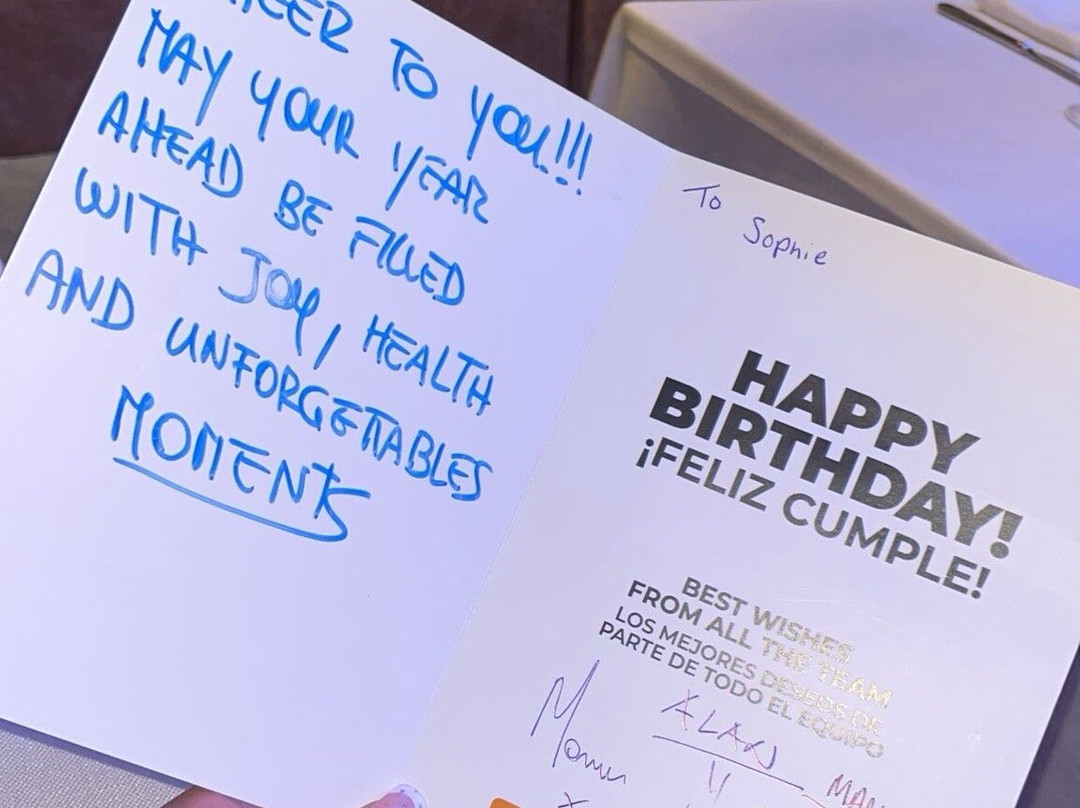 TO YOU!!!
MAY YOUR YEAR
AHEAD BE FILLED
WITH JOY, HEALTH
AND UNFORGETTABLES
MOMENTS
To Sophie
HAPPY
BIRTHDAY!
¡FELIZ CUMPLE!
BEST WISHES
FROM ALL THE TEAM
LOS MEJORES DESEOS DE
PARTE DE TODO EL EQUIPO
ALAN